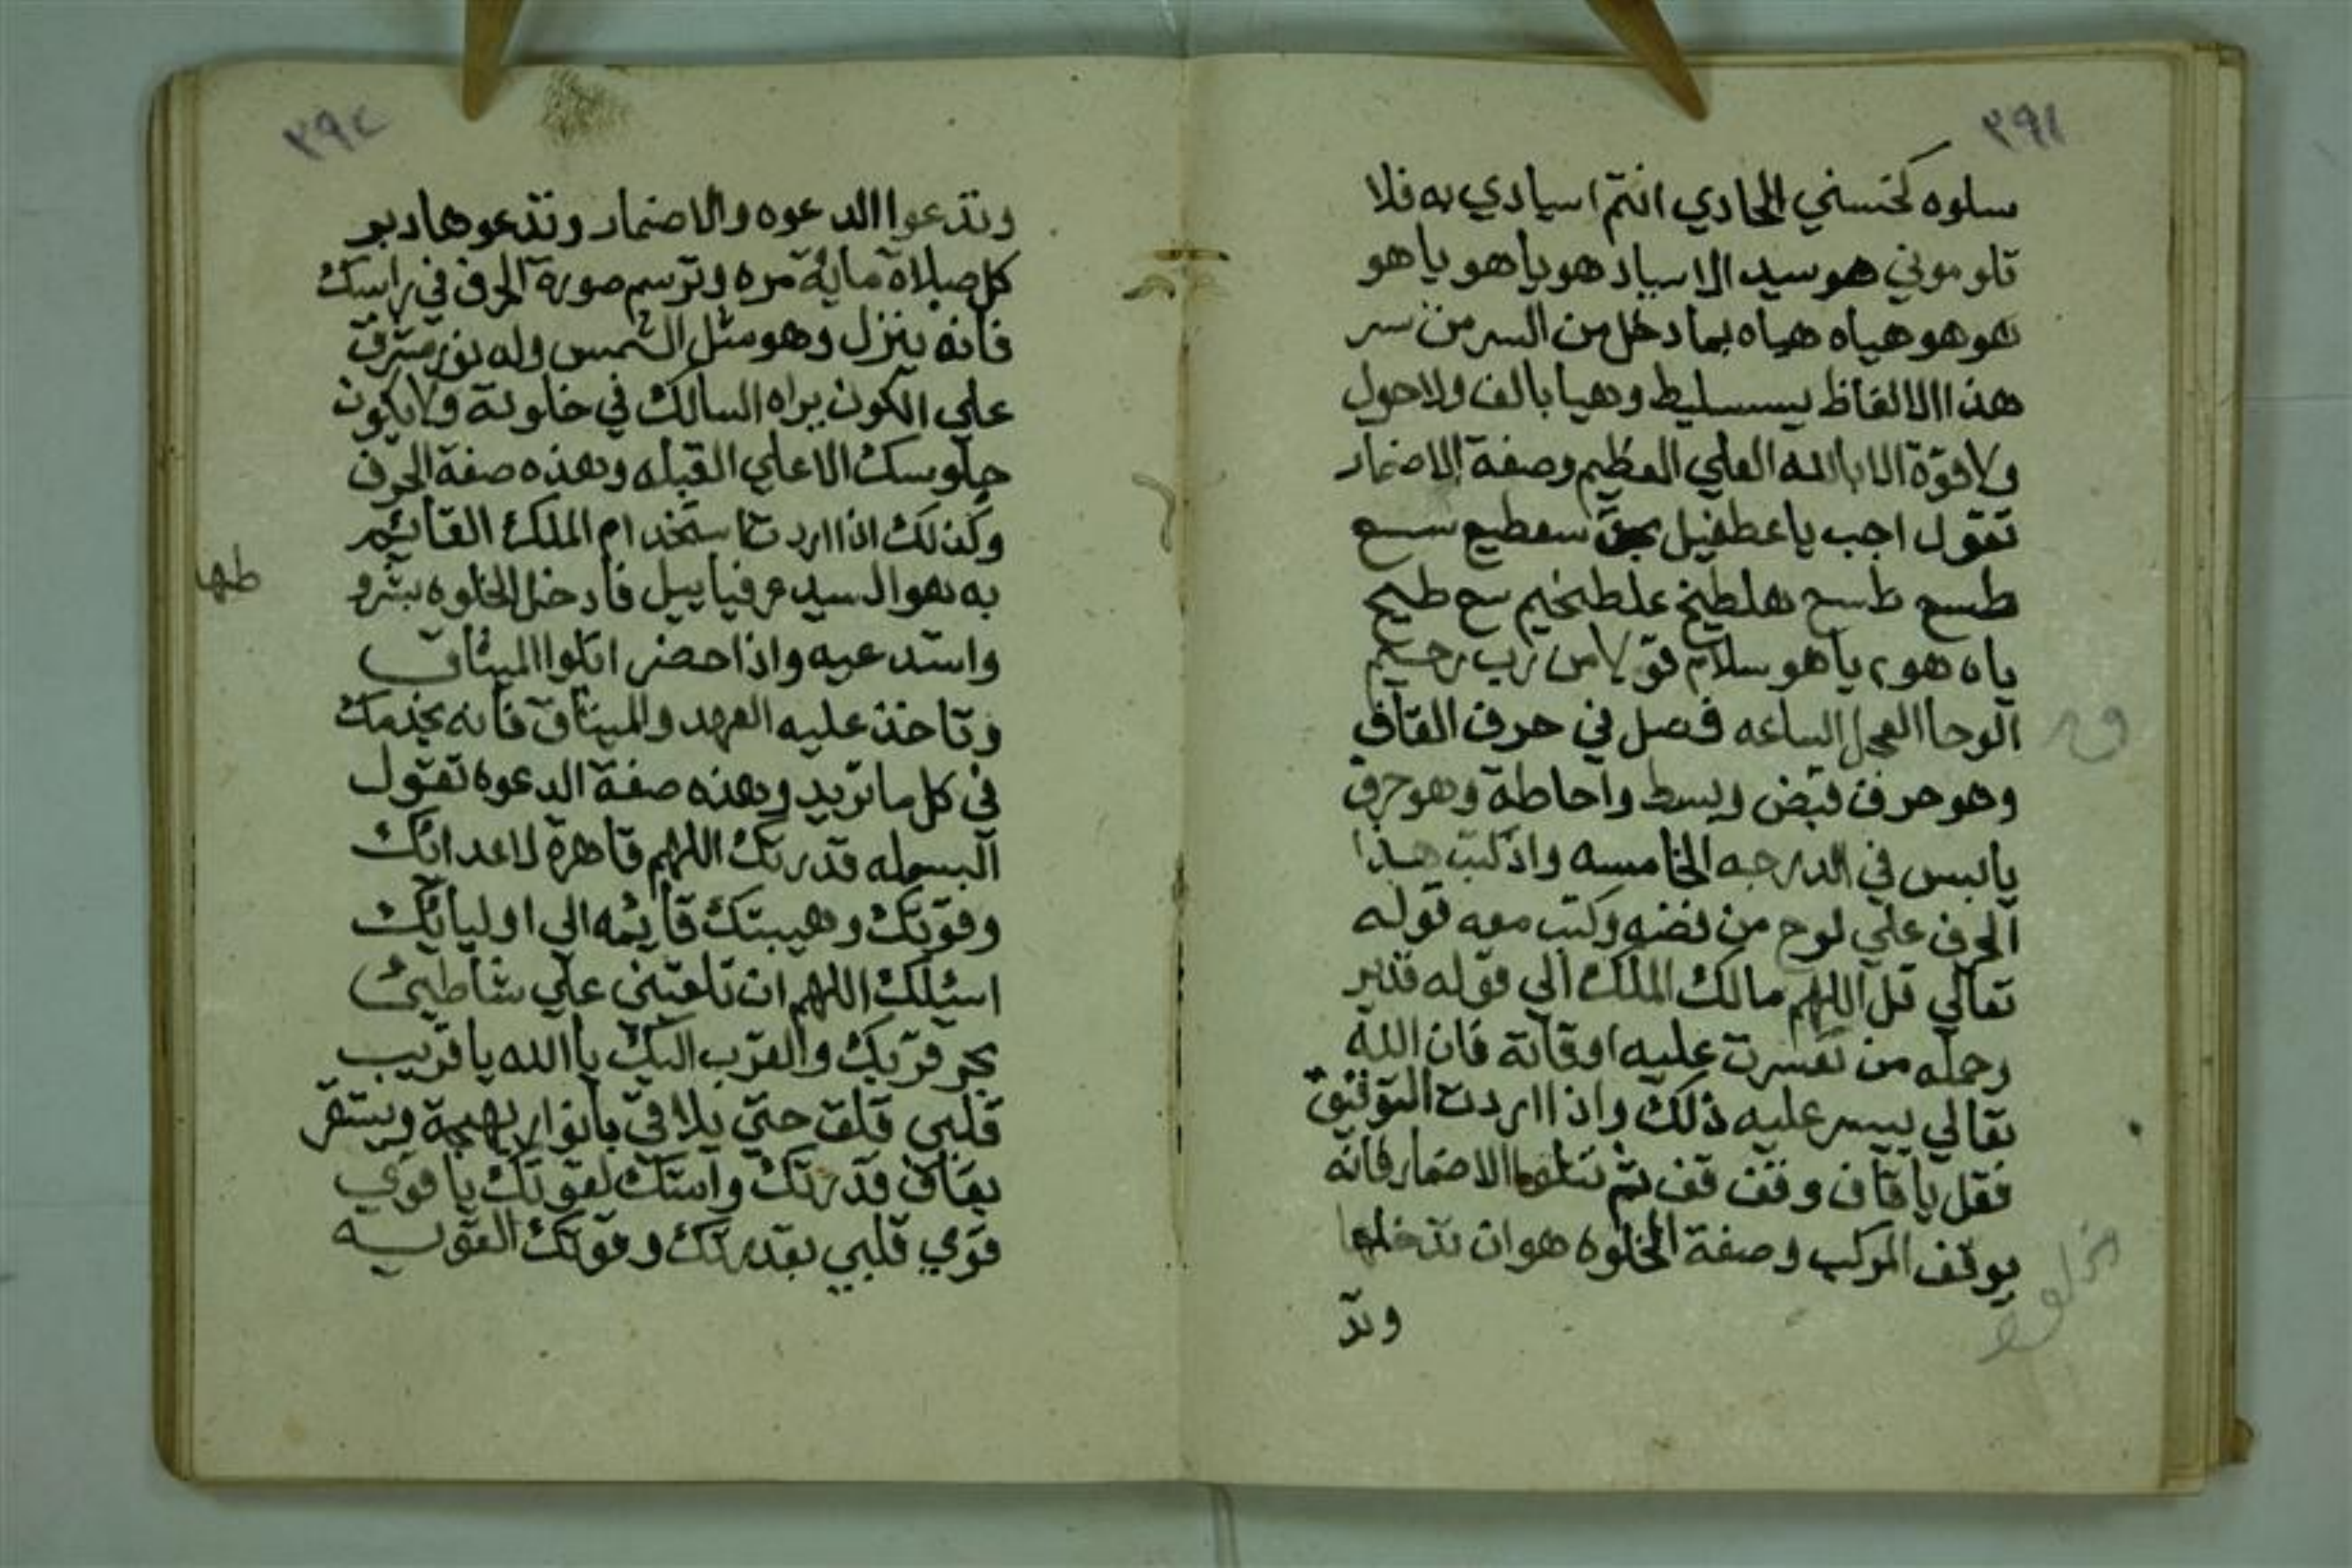 ٢٩١
سلوه كحسني الحادي انتم اسيادي به فلا
تلوموني هو سيد الاسياد هو ياهو ياهو
هوهو هياه هياه بما دخل من السر من سر
هذا الالفاظ بسسليط وهيا بالف ولاحول
ولاقوة الا بالله العلي العظيم وصفة الاضمار
تقول اجب يا عطفيل بحق سعطيع سسع
طسع طسع هلطيخ علطخيم سع طيح
ياه هو٢ ياهو سلام قولا من رب رحيم
الوحا العجل الساعه فصل في حرف القاف
ق
وهو حرف قبض وبسط واحاطة وهو حرف
يابس في الدرجه الخامسه واذ كتب هذا
الحرف علي لوح من فضه وكتب معه قوله
تعالي قل اللهم مالك الملك الي قوله قدير
وحمله من تعسرت عليه اوقاته فان الله
تعالي ييسر عليه ذلك واذا اردت التوفيق
فقل يا قاف وقف قف ثم تتلوا الاضمار فانه
يوقف المركب وصفة الخلوه هو ان تدخلها
وتد
٢٩٢
وتدعوا الدعوه والاضمار وتدعوها دبر
كل صلاة ماية مره وترسم صورة الحرف في راسك
فانه ينزل وهو مثل الشمس وله نور مشرق
علي الكون يراه السالك في خلوته ولايكون
جلوسك الا علي القبله وهذه صفة الحرف
وكذلك اذا اردت استخدام الملك القائم
به هو السيد عرفياييل فادخل الخلوه بشرو
طها
واستدعيه واذا حضر اتلوا الميثاق
وتاخذ عليه العهد والميثاق فانه يخدمك
في كل ما تريد وهذه صفة الدعوه تقول
البسمله قدرتك اللهم قاهرة لاعدائك
وقوتك وهيبتك قايمه الي اوليائك
اسئلك اللهم ان تلقني علي شاطيئ
بحر قربك والقرب اليك يا الله يا قريب
قلبي قلق حتي يلاقي بانوار بهيجة ويستقر
بقاف قدرتك واستك لقوتك يا قوي
قوي قلبي بقدرتك وقوتك القويه